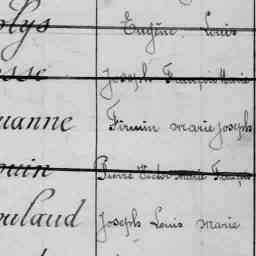 olys Eugène Louis
esse Joseph François Marie
uanne Firmin Marie Joseph
ouin Pierre Victor Marie François
oulaud Joseph Louis Marie